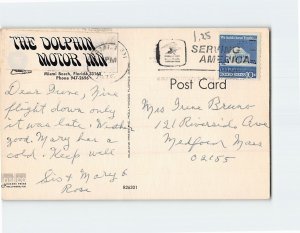 THE DOLPHIN
MOTOR INN
Miami Beach, Florida 33160
Phone 947-2656
PM
1.25
SERVING
AMERICA
10c
Post Card
Dear Irene, Nice
flight down only
it was late. Weather
good. Mary has a
cold. Keep well
Sis & Mary &
Rose
Mrs Irene Bruno
121 Riverside Ave
Medford Mass
02155
R26201